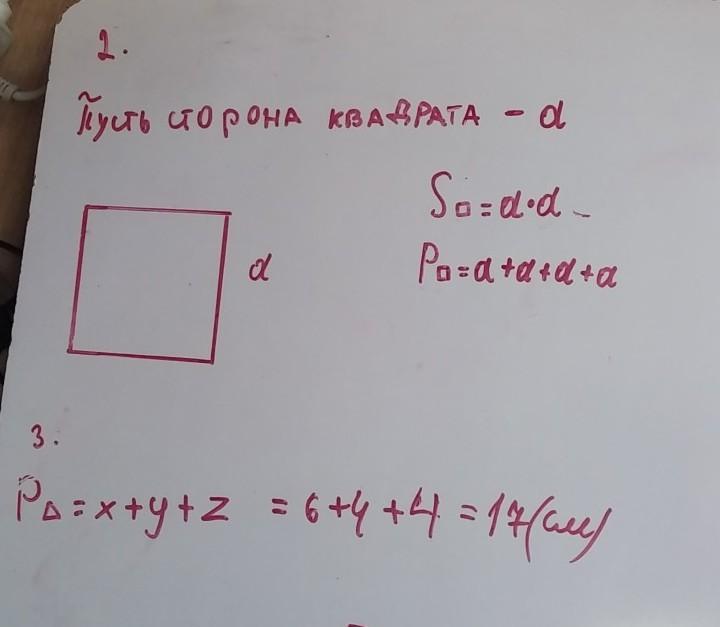 2.
Пусть сторона квадрата - a
S□ = a·a
a
P□ = a+a+a+a
3.
PΔ = x+y+z = 6+4+4 = 17(см)